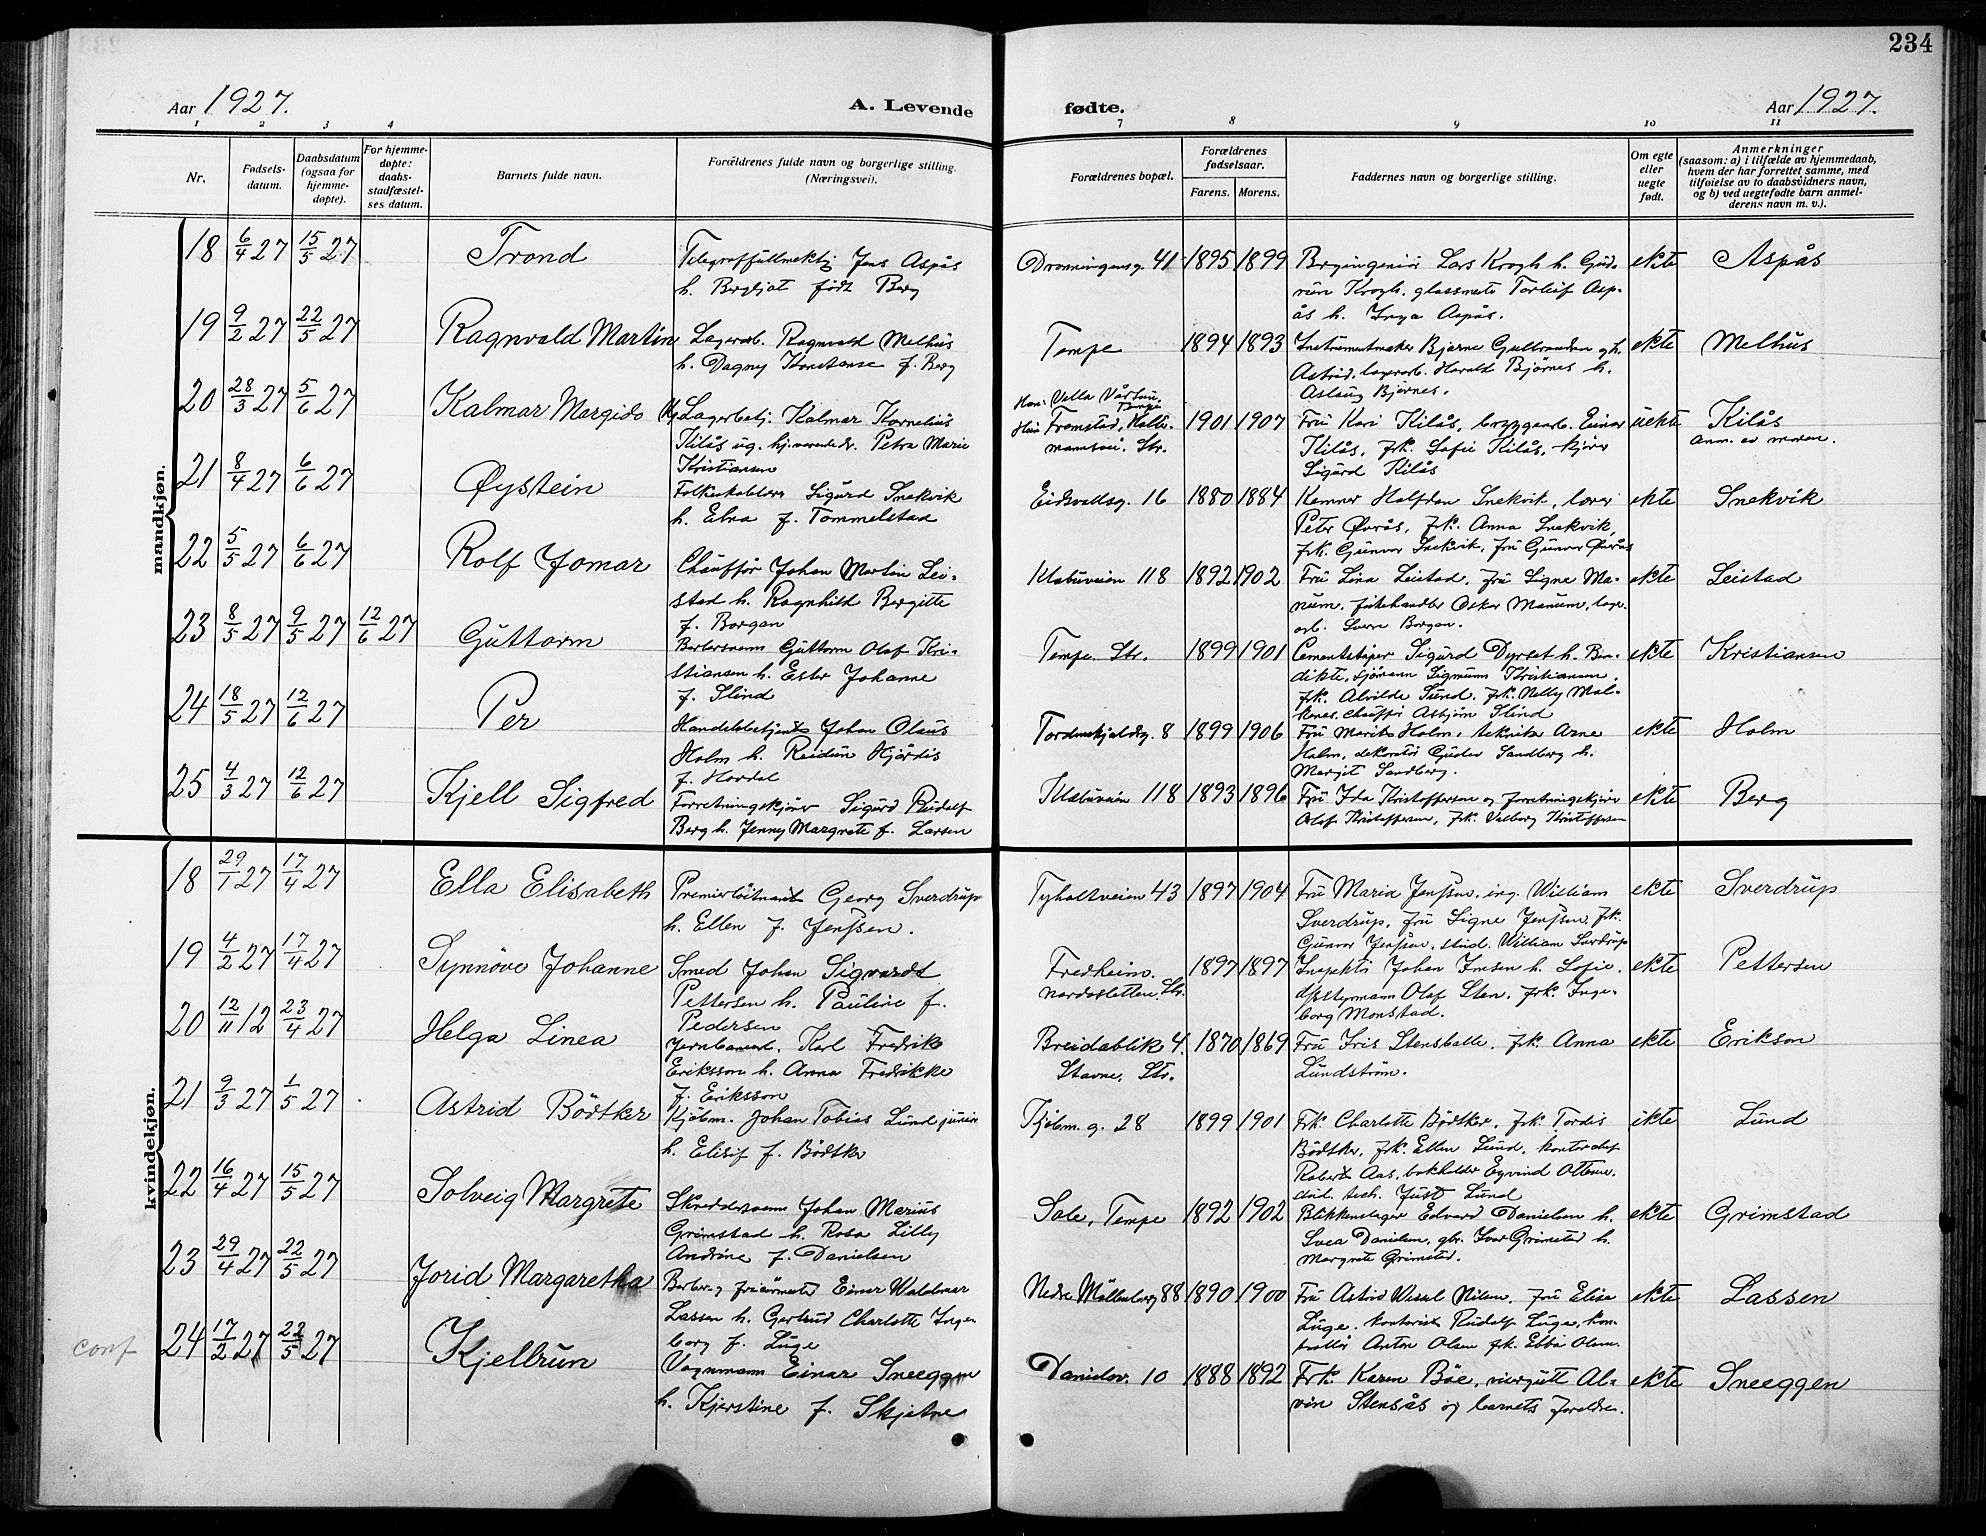 234
Aar 1927.
A. Levende
fødte.
Aar 1927.
1 2 3 4
7 8 9 10 11
Nr.
Fødsels-
datum.
Daabsdatum
(ogsaa for
hjemme-
døpte).
For hjemme-
døpte:
daabs-
stadfæstel-
ses datum.
Barnets fulde navn.
Forældrenes fulde navn og borgerlige stilling.
(Næringsvei).
Forældrenes bopæl.
Forældrenes
fødselsaar.
Farens. Morens.
Faddernes navn og borgerlige stilling.
Om egte
eller
uegte
født.
Anmerkninger
(saasom: a) i tilfælde av hjemmedaab,
hvem der har forrettet samme, med
tilføielse av to daabsvidners navn,
og b) ved uegtefødte barn anmel-
derens navn m. v.).
mandkjøn.
18 6/4 27 15/5 27 Trond
Telegraffullmektig Jens Aspås
h. Bergljot født Berg
Dronningensg. 41 1895 1899
Bergingeniör Lars Krogh h. Gud-
run Krogh, glassmester Torleif Asp-
ås h. Inga Aspås.
ekte Aspås
19 9/2 27 22/5 27 Ragnvald Martin
Lagerarb. Ragnvald Melhus
h. Dagny Konstanse f. Berg
Tempe 1894 1893
Instrumentmaker Bjarne Gulbrandsen og h.
Astrid, lagerarb. Harald Björnes h.
Aslaug Bjørnes.
ekte Melhus
20 28/3 27 5/6 27 Kalmar Margido
Lagerbetj. Kalmar Kornelius
Kilås ug. hj.værende Petra Marie
Kristiansen
Han: Villa Vårtun,
Berge
Hun Fremstad, Halse-
mansvei. Str.
1901 1907
Fru Kari Kilås, bryggearb. Einar
Kilås, frk. Sofie Kilås, kjører
Sigurd Kilås
uekte Kilås
Anm. av moren.
21 8/4 27 6/6 27 Øystein
Folkeskolelærer Sigurd Snekvik
h. Ebra f. Tommelstad
Eidsvollsg. 16 1880 1884
Kemner Halfdan Snekvik, lærer
Peter Øvrås, frk. Anna Snekvik,
frk. Gunvor Snekvik, fru Gunvor Øvrås
ekte Snekvik
22 5/5 27 6/6 27 Rolf Jomar
Chauffør Johan Martin Lei-
stad h. Ragnhild Bergitte
f. Borgan
Klæbuveien 118 1892 1902
Fru Lina Leistad, fru Signe Ma-
num, fiskehandler Oskar Manum, lager-
arb. Sverre Borgan.
ekte Leistad
23 8/5 27 9/5 27 12/6 27 Guttorm
Barbersvenn Guttorm Olaf Kri-
stiansen h. Ester Johanne
f. Slind
Tempe. Str. 1899 1901
Cementstøper Sigurd Dyrset h. Ben-
dikte, sjömann Sigmund Kristiansen,
frk. Alvilde Sund, frk. Nelly Mal-
kenes, chauffør Asbjørn Slind
ekte Kristiansen
24 18/5 27 12/6 27 Per
Handelsbetjent Johan Olaus
Holm h. Reidun Hjördis
f. Hardal
Tordenskjoldsg. 8 1899 1906
Fru Marit Holm, tekniker Arne
Holm, dekoratør Gudev Sandberg h.
Margit Sandberg.
ekte Holm
25 4/3 27 12/6 27 Kjell Sigfred
Forretningskjører Sigurd Rudolf
Berg h. Jenny Margrete f. Larsen
Klæbuveien 118 1893 1896
Fru Ida Kristoffersen og forretningskjører
Olaf Kristoffersen, frk. Valborg Kristoffersen
ekte Berg
kvindekjøn.
18 29/1 27 17/4 27 Ella Elisabeth
Premierløitnant Georg Sverdrup
h. Ellen f. Jenssen.
Tyholtveien 43 1897 1904
Fru Maria Jenssen, ing. William
Sverdrup, fru Signe Jenssen, frk.
Gunvor Jenssen, stud. William Sverdrup
ekte Sverdrup
19 4/2 27 17/4 27 Synnöve Johanne
Smed Johan Sigvardt
Pettersen h. Pauline f.
Pedersen
Fredheim.
Nardosletten. Str.
1897 1897
Inspektør Johan Imsen h. Sofie,
d/sstyrmann Olaf Sten, frk. Inge-
borg Monstad.
ekte Pettersen
20 12/11 12 23/4 27 Helga Linea
Jernbanearb. Karl Fredrik
Eriksson h. Anna Fredrikke
f. Eriksson
Breidablik 4.
Stavne, Str.
1870 1869
Fru Iris Stensballe, frk. Anna
Lundström.
ekte Erikson
21 9/3 27 1/5 27 Astrid Bödtker
Kjöbm. Johan Tobias Lund junior
h. Elisif f. Bödtker
Kjöbm. g. 28 1899 1901
Frk. Charlotte Bødtker, frk. Tordis
Bödtker, frk. Ellen Lund, kontorchef
Robert Aas, bokholder Eyvind Ottesen,
cand. tech. Just Lund
ekte Lund
22 16/4 27 15/5 27 Solveig Margrete
Skreddersvenn Johan Marius
Grimstad h. Rosa Lilly
Andrine f. Danielsen
Sole, Tempe 1892 1902
Blikkenslager Edvard Danielsen h.
Svea Danielsen, gbr. Ivar Grimstad h.
Margrete Grimstad.
ekte Grimstad
23 29/4 27 22/5 27 Jorid Margaretha
Barber og frisørmester Einar Waldemar
Lassen h. Gertrud Charlotte Inge-
borg f. Luge
Nedre Möllenberg 88 1890 1900
Fru Astrid Wessel Nilsen, fru Elise
Luge, kontorist Rudolf Luge, kon-
trollör Anton Olsen frk. Ebba Olsen
ekte Lassen
conf 24 17/2 27 22/5 27 Kjellrun
Vognmann Einar Sneeggen
h. Kjerstine f. Skjetne
Danielsv. 10 1888 1892
Frk. Karen Böe, visergutt Al-
vin Stensås og barnets foreldre.
ekte Sneeggen